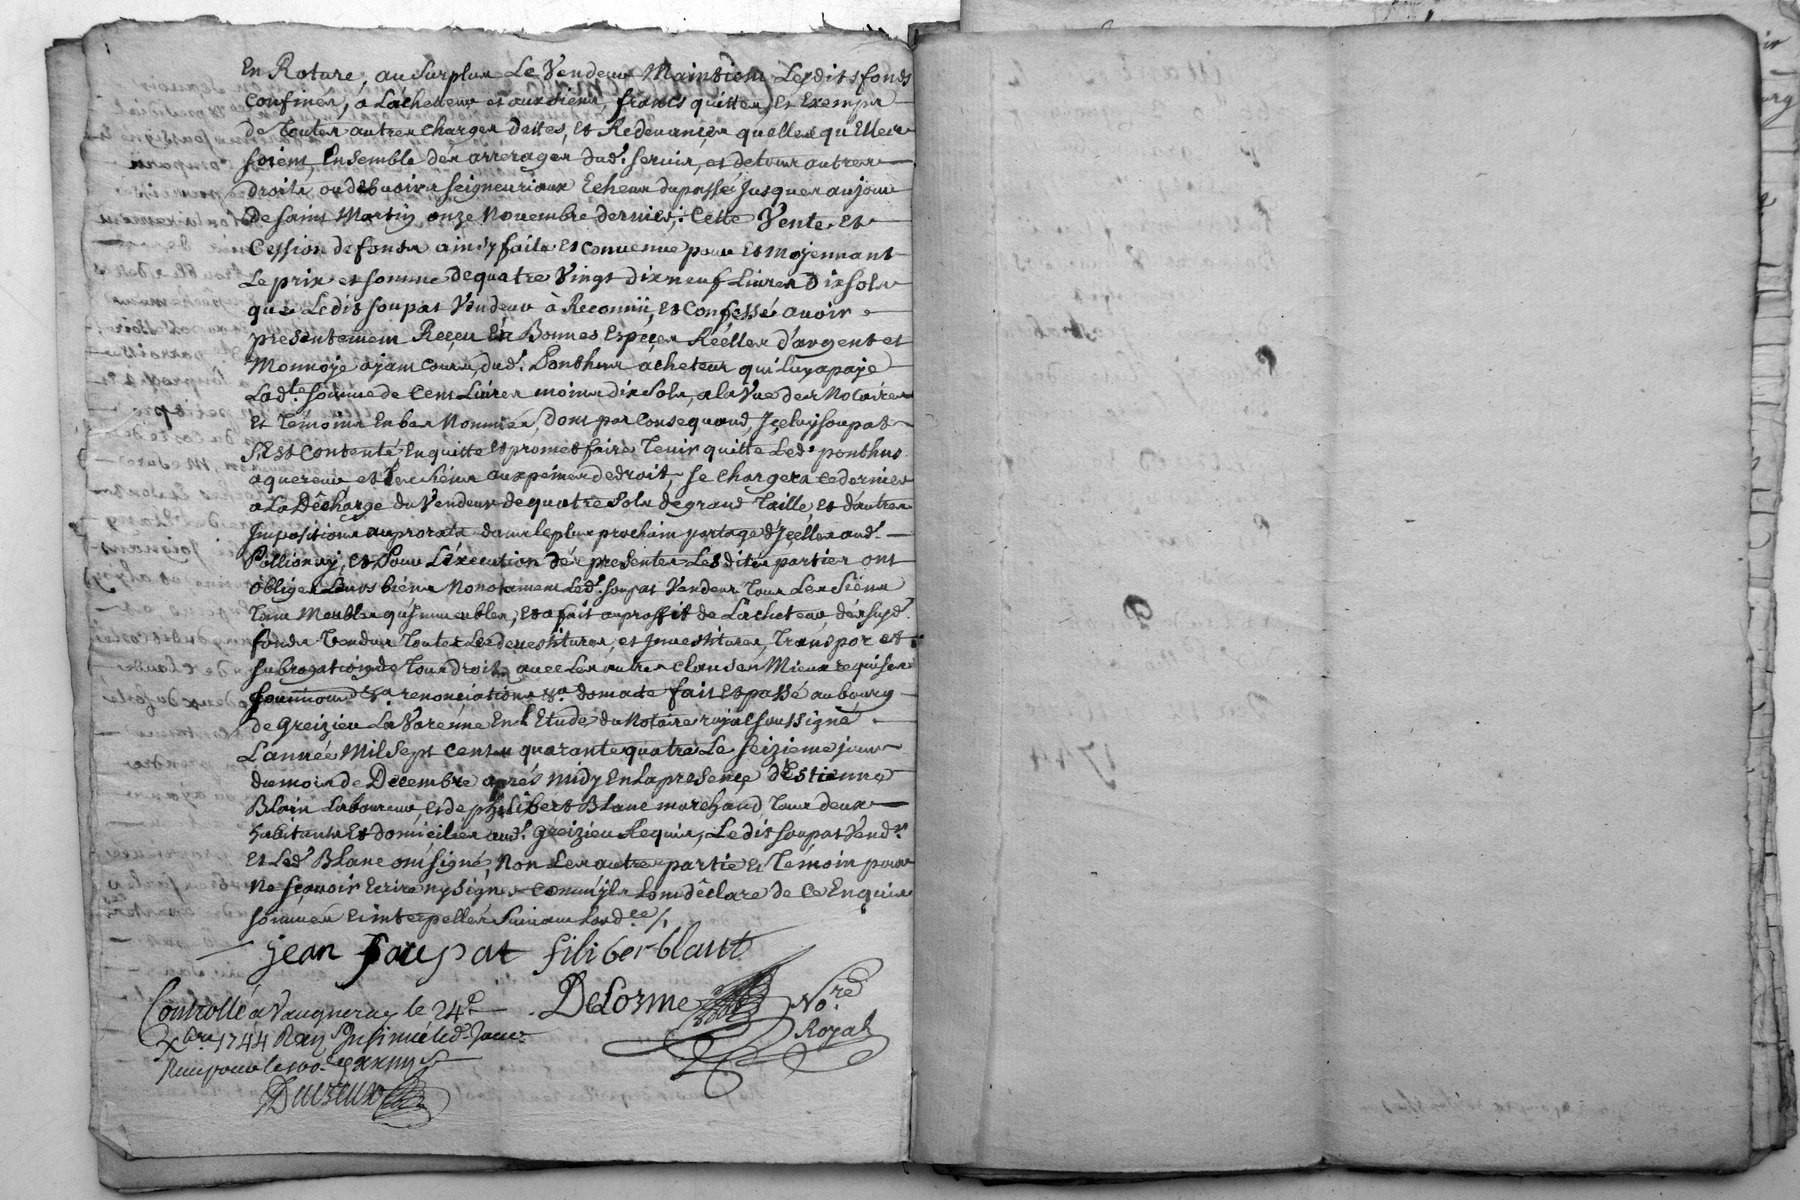 En Roture, au Surplus Le Vendeur Maintient Lesdits fonds
confinés, à Lacheteur et aux siens, francs quittes, Et Exempts
de Toutes autres charges dettes, et Redevances quelles qu'Elles
soient, Ensemble dés arrerages dud. servis, et de tous autres
droits, ou debvoirs seigneuriaux Echeus du passé Jusques au jour
de saint Martin onze Novembre dernier; Cette Vente et
Cession de fonds ainsy faite et convenue pour et moyennant
Le prix et somme de quatre Vingt dix neuf Livres Dix sols
que Ledit soupat Vendeur à Reconnü, et Confessé avoir
presentement Reçeu En Bonnes Espéçes Réélles d'argent et
Monnoye ayant cours, dud. Ponthus acheteur qui Luy a payé
Lad.te somme de Cent Livres moins dix Sols, a la Vue des Notaire
Et Témoins En bas Nommés, dont par Consequand, Jçeluy soupat
s'Est Contenté, En quitte et promet faire Tenir quitte Led. ponthus
aquereur, et Les siens aux peines de droit, se chargera ce dernier
a La Décharge du Vendeur de quatre Sols de grand Taille, et d'autres
Impositions au prorata dans le plus prochain partage d'Jçelles aud.
Pollionay, et Pour L'éxecution dés presentes Lesdites parties ont
obligés Leurs biéns Nonotament Led. soupat Vendeur Tous Les Siéns
Tant Meubles qu'Immeubles, et a fait au proffit de Lacheteur dés susd.
fonds Vendus Toutes Les devestitures, et Jnvestitures, Transport et
subrogation de Tous droits avec Les autres clauses Mieux requises
soumissions &a. renonciations &a. dont acte fait et passé au bourg
de Greizieu La Varénne En L'Etude du Notaire royal soussigné
L'année Mil Sept Cents quarante quatre Le Seizieme jour
du mois de Décembre aprés midy En La presençe d'Estienne
Blain Laboureur, et de philibert Blanc marchand, Tous deux
habitants et domiciliés aud. Greizieu Requis, Ledit soupat Vend.r
Et Led. Blanc ont signé, Non Les autres partie et Témoin pour
Ne sçavoir Ecrire ny signer comm'jls L'ont déclaré de Ce Enquis
sommés et interpellés Suivant Lord.ce /.
jean soupat filiber blant
DeLorme No.re
Royal
Controllé a Vaugneray le 24.e
Xbre 1744
Ducreux